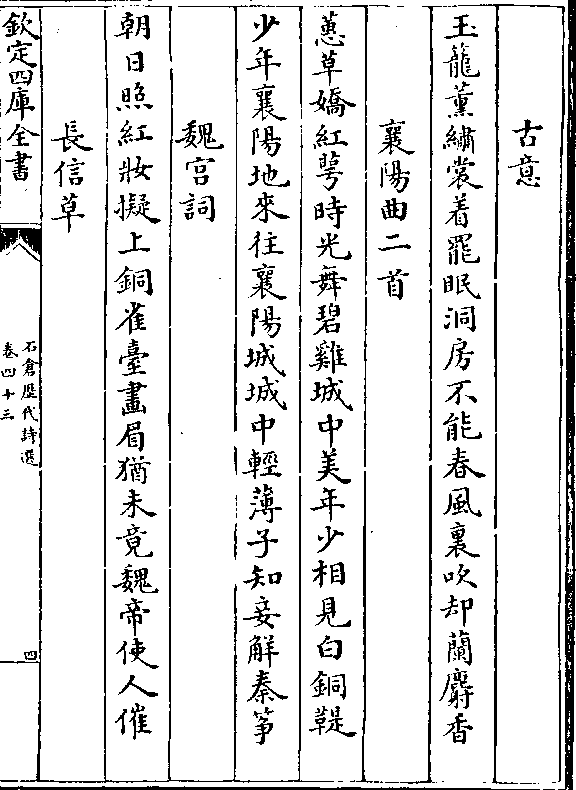 古意
玉籠薰繡裳着罷眠洞房不能春風裏吹却蘭麝香
襄陽曲二首
蕙草嬌紅萼時光舞碧雞城中美年少相見白銅鞮
少年襄陽地來往襄陽城城中輕薄子知妾解秦筝
魏宫詞
朝日照紅妝擬上銅雀臺畫眉猶未竟魏帝使人催
長信草
欽定四庫全書
石倉歷代詩選
卷四十三
四